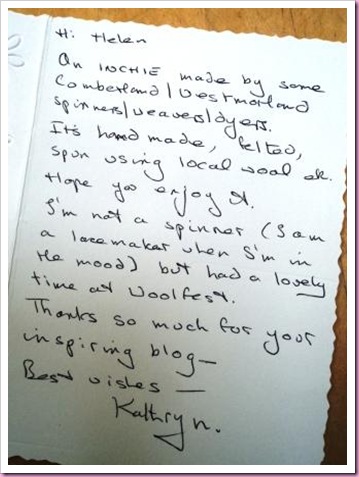 Hi Helen
An INCHIE made by some
Cumberland/Westmorland
spinners/weavers/dyers.
It's handmade, felted,
spun using local wool etc.
Hope you enjoy it.
I'm not a spinner (I am
a lacemaker when I'm in
the mood) but had a lovely
time at Woolfest.
Thanks so much for your
inspiring blog –
Best wishes –
Kathryn.